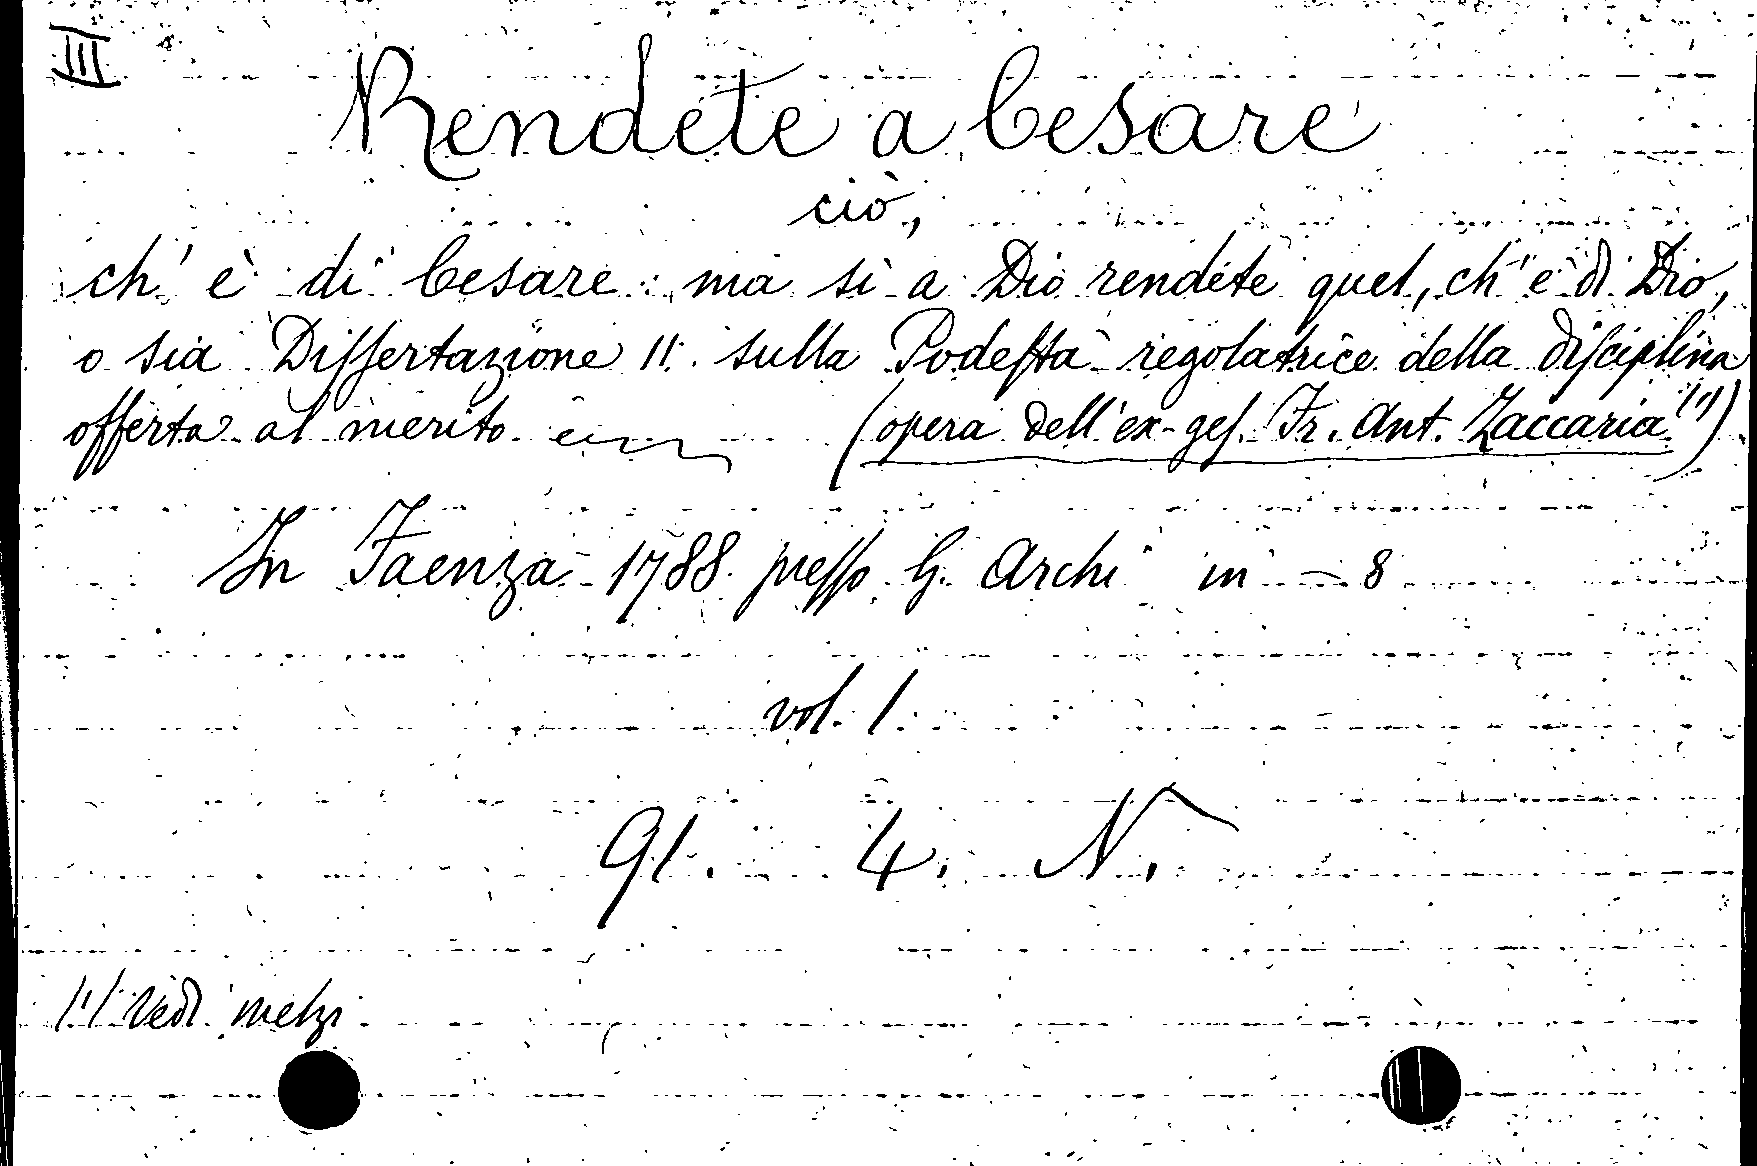 III
Rendete a Cesare
ciò,
ch' è di Cesare: ma sì a Dio rendete quel, ch' è di Dio,
o sia Dissertazione II. sulla Podestà regolatrice della disciplina
offerta al merito (opera dell' ex-ges. Fr. Ant. Zaccaria (1))
In Faenza 1788. presso G. Archi in - 8
vol. 1.
91. 4. N.
(1) Vedi Melzi